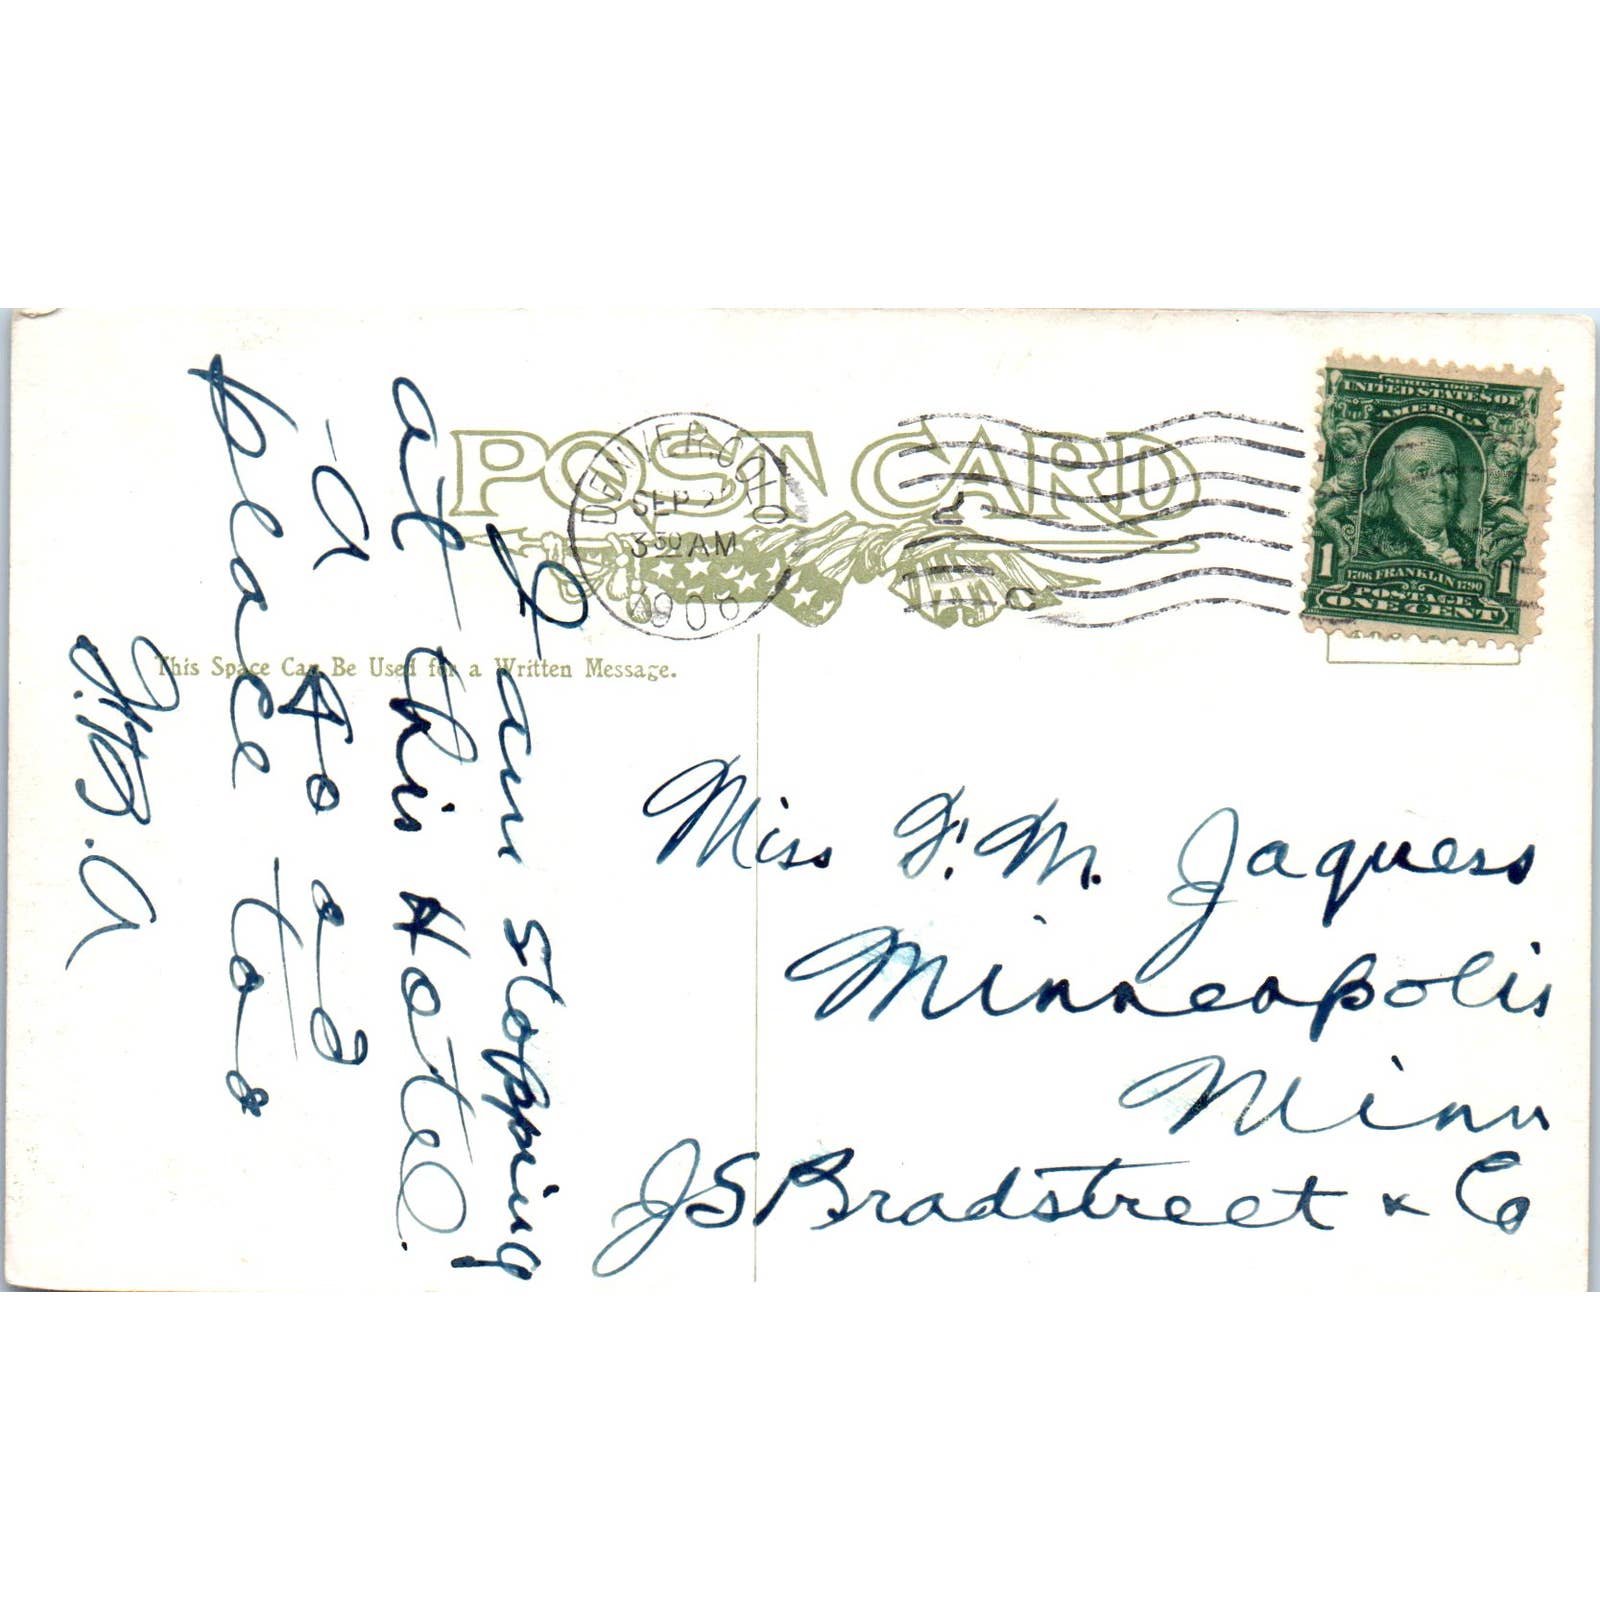 POST CARD
DENVER. COLO
SEP
3 30 AM
1908
SERIES 1902
UNITED STATES OF
AMERICA
1706 FRANKLIN 1790
POSTAGE
1 ONE CENT 1
This Space Can Be Used for a Written Message.
I am stopping
at this Hotel.
- a good
place to
Miss F. M. Jaquess
Minneapolis
Minn
J S Bradstreet & Co